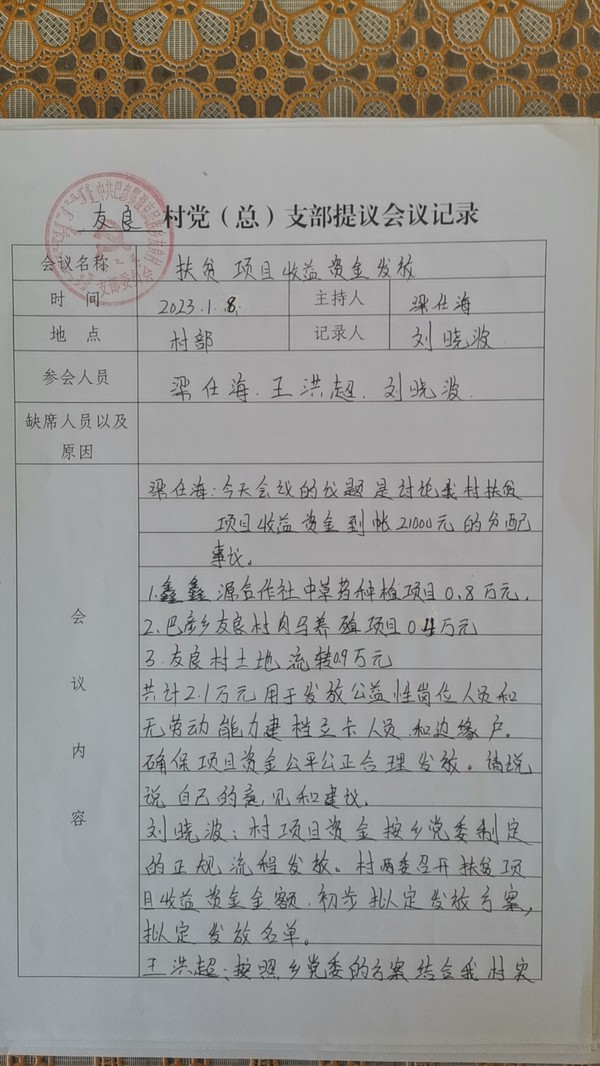 友良 村党（总）支部提议会议记录
会议名称 扶贫项目收益资金发放
时 间 2023.1.8. 主持人 梁仕海
地 点 村部 记录人 刘晓波
参会人员 梁仕海.王洪超.刘晓波.
缺席人员以及
原因
会议内容
梁仕海:今天会议的议题是讨论我村扶贫
项目收益资金到帐21000元的分配
事议。
1.鑫鑫源合作社中草药种植项目0.8万元.
2.巴彦乡友良村肉马养殖项目0.4万元
3.友良村土地流转0.9万元
共计2.1万元用于发放公益性岗位人员和
无劳动能力建档立卡人员.和边缘户。
确保项目资金公平公正合理发放。请说
说自己的意见和建议.
刘晓波:村项目资金按乡党委制定
的正规流程发放。村两委召开扶贫项
目收益资金金额.初步拟定发放方案,
拟定发放名单。
王洪超:按照乡党委的方案结合我村实